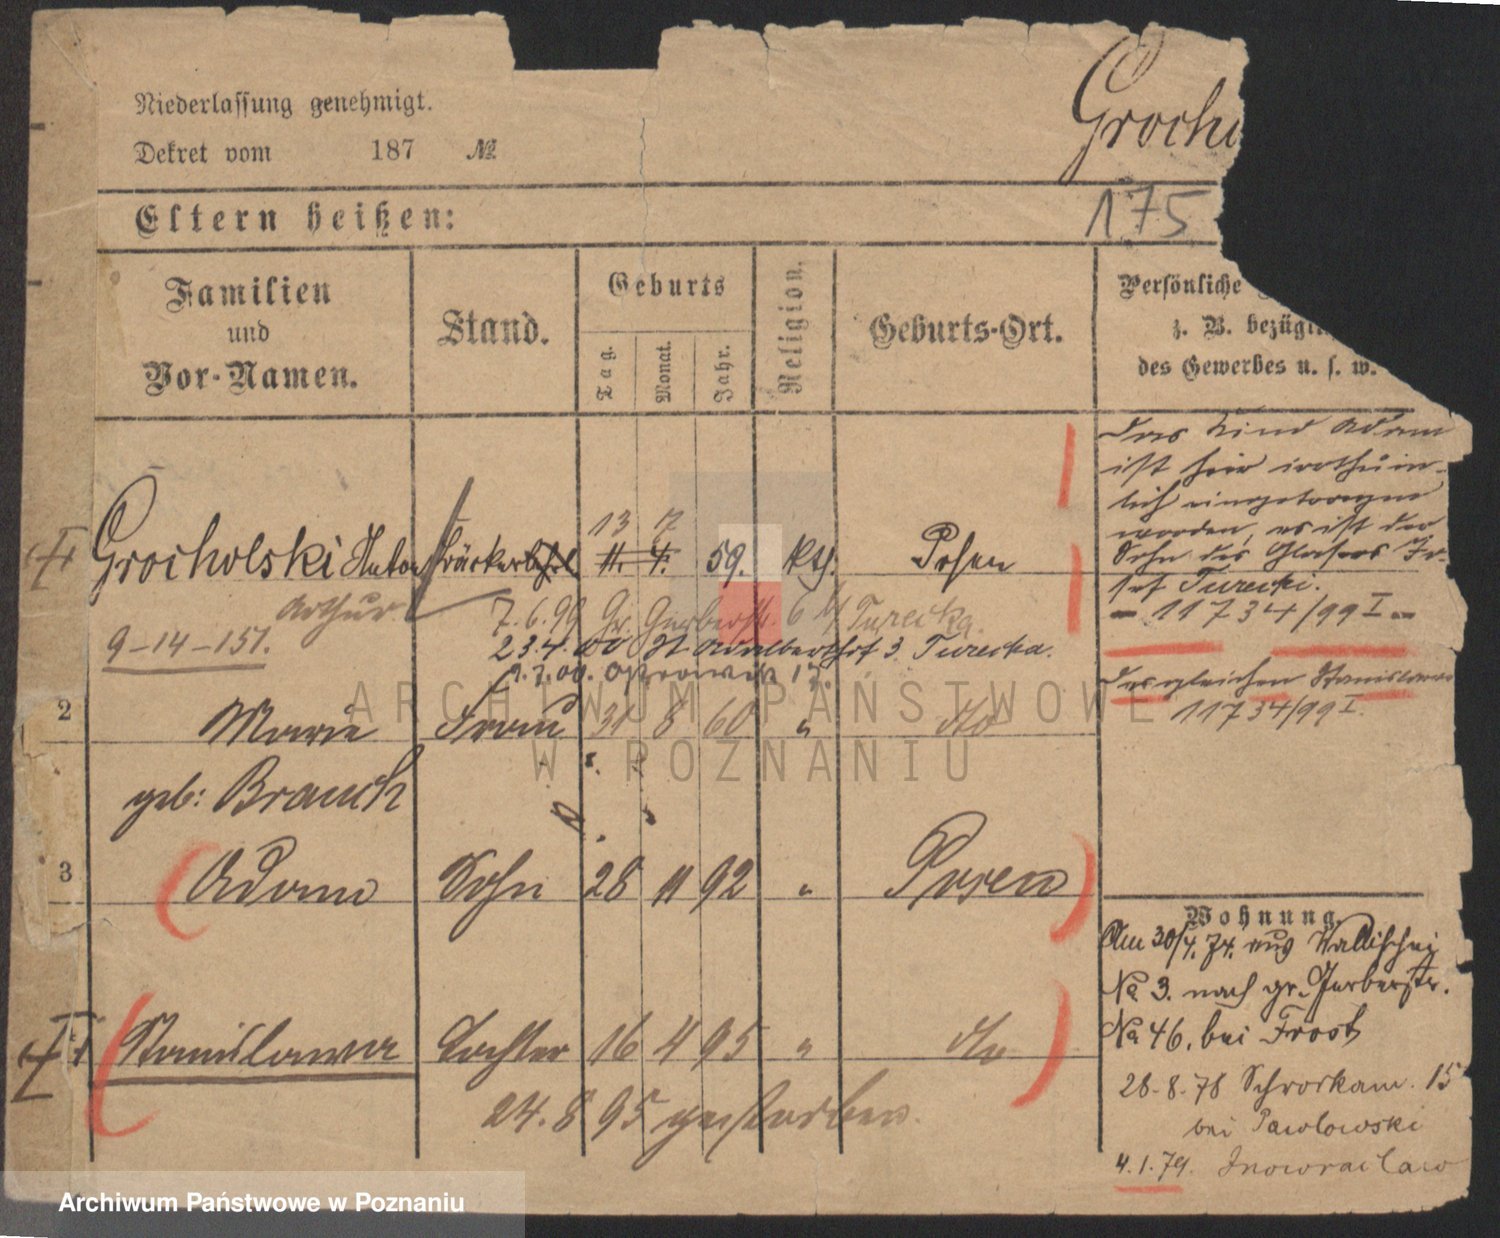 Niederlassung genehmigt.
Dekret vom 187 №
Groch
175
Eltern heißen:
Familien
und
Vor-Namen.
Stand.
Geburts
Tag.
Monat.
Jahr.
Religion.
Geburts-Ort.
Persönliche
z. B. bezügl
des Gewerbes u. s. w.
Das Kind Adam
ist hier irrthüm-
lich eingetragen
worden, es ist der
Sohn des Glasers Jo-
sef Turecki.
- 11734/99 I -
Desgleichen Stanislawa
11734/99 I.
13 7
Grocholski Anton 11. 4. 59. kth. Posen
Arthur
7.6.99 Gr. Gerberstr. 6 Turecka.
9-14-151.
23.4.00 St. Adalbertstr 3 Turecka.
2
Marie Frau 31 8 60 " do
geb: Brauch
3
Adam Sohn 28 11 92 " Posen
Stanislawa Tochter 16 4 95 " do
24.8 95 gestorben.
Wohnung.
Am 30/4. 74. aus Wallischei
No 3. nach gr. Gerberstr.
No 46. bei Frost
28.8.78 Schrodkam. 15
bei Pawlowski
4.1.79. Inowraclaw
ARCHIWUM PAŃSTWOWE
W POZNANIU
Archiwum Państwowe w Poznaniu